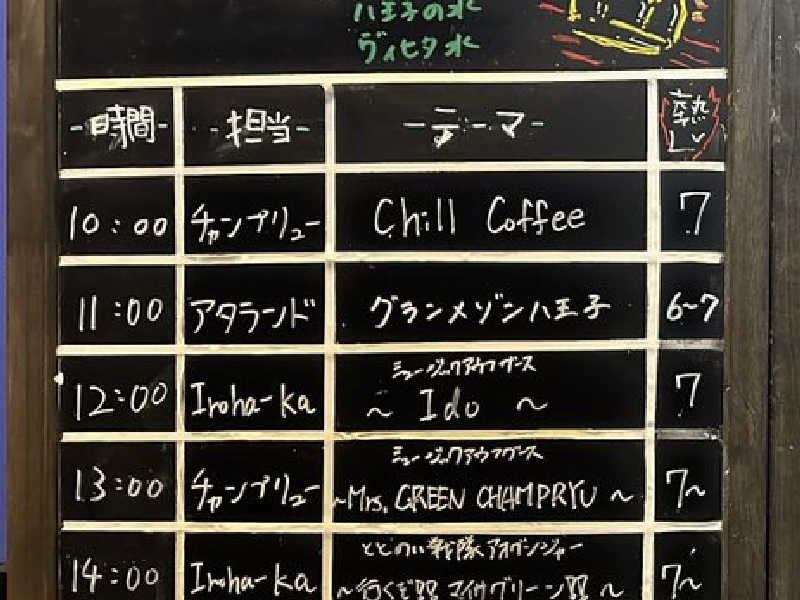 八王子の水
ヴィヒタ水
-時間- -担当- -テーマ- 熱レベ
10:00 チャンプリュー Chill Coffee 7
11:00 アタランド グランメゾン八王子 6~7
ミュージックアウフグース
12:00 Iroha-ka ~ Ido ~ 7
ミュージックアウフグース
13:00 チャンプリュー ~Mrs. GREEN CHAMPRYU ~ 7~
ととのい戦隊アオゲンジャー
14:00 Iroha-ka ~行くぞ マイナグリーン ~ 7~